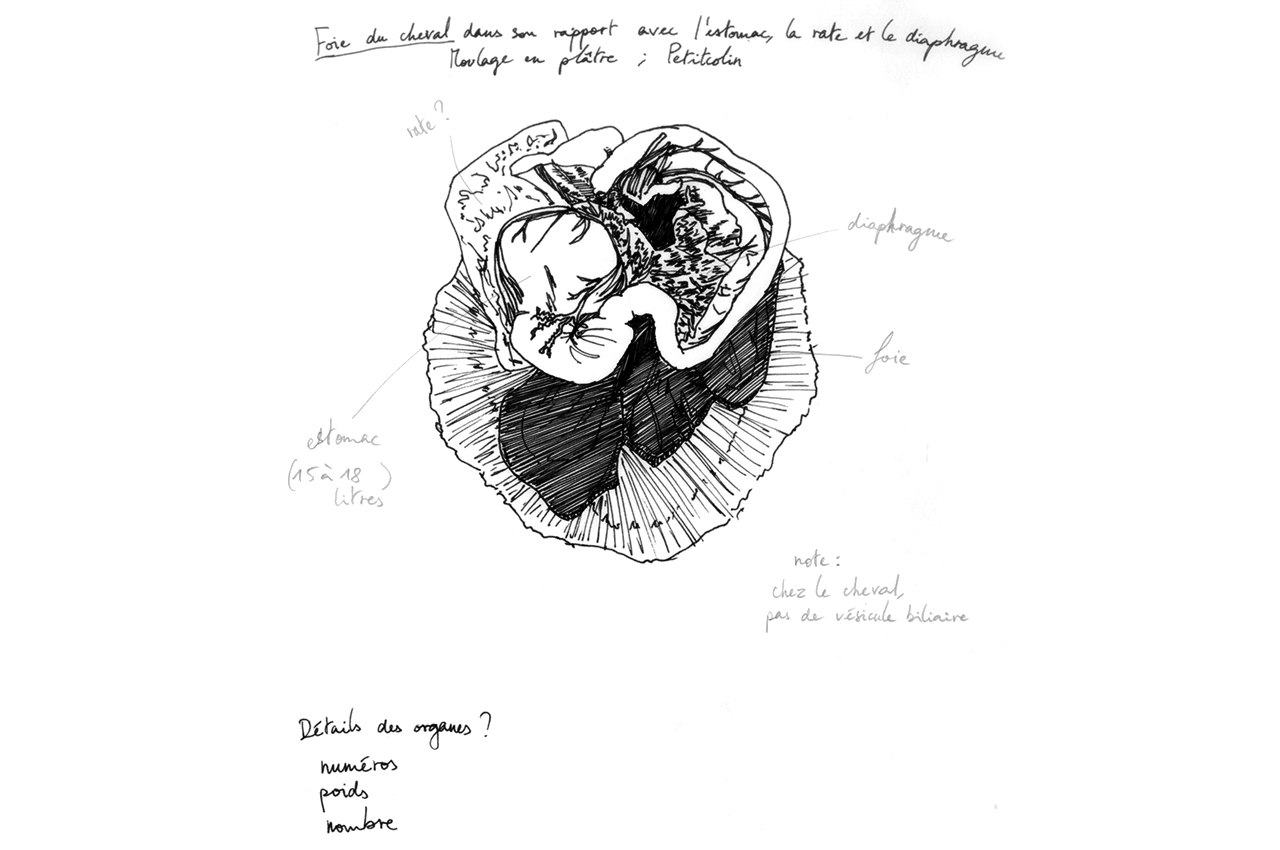 Foie du cheval dans son rapport avec l'estomac, la rate et le diaphragme
Moulage en plâtre ; Petitcolin
rate ?
diaphragme
foie
estomac
(15 à 18 )
litres
note :
chez le cheval,
pas de vésicule biliaire
Détails des organes ?
numéros
poids
nombre